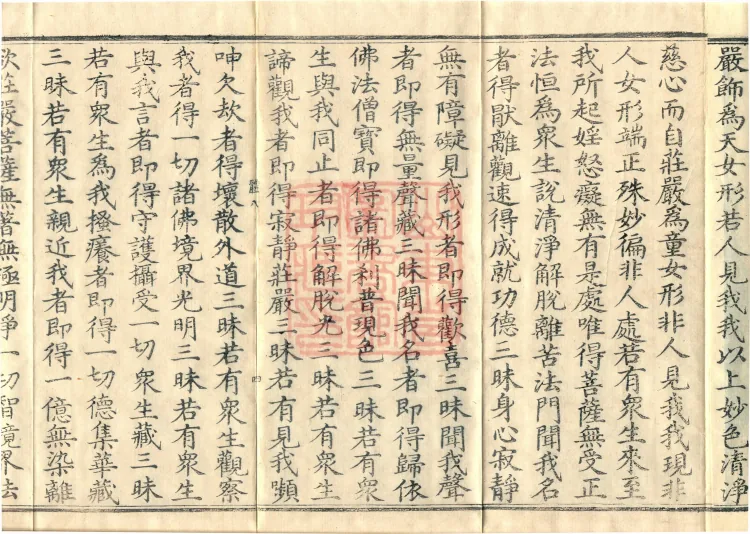 嚴飾爲天女形若人見我我以上妙色清淨
慈心而自莊嚴爲童女形非人見我我現非
人女形端正殊妙徧非人處若有衆生來至
我所起婬怒癡無有是處唯得菩薩無受正
法恒爲衆生說清淨解脫離苦法門聞我名
者得猒離觀速得成就功德三昧身心寂靜
無有障礙見我形者即得歡喜三昧聞我聲
者即得無量聲藏三昧聞我名者即得歸依
佛法僧寶即得諸佛利普現色三昧若有衆
生與我同止者即得解脫光三昧若有衆生
諦觀我者即得寂靜莊嚴三昧若有見我嚬
呻欠欬者得壞散外道三昧若有衆生觀察
我者得一切諸佛境界光明三昧若有衆生
與我言者即得守護攝受一切衆生藏三昧
若有衆生爲我搔癢者即得一切德集華藏
三昧若有衆生親近我者即得一億無染離
欲莊嚴菩薩無著無極明淨一切智境界法